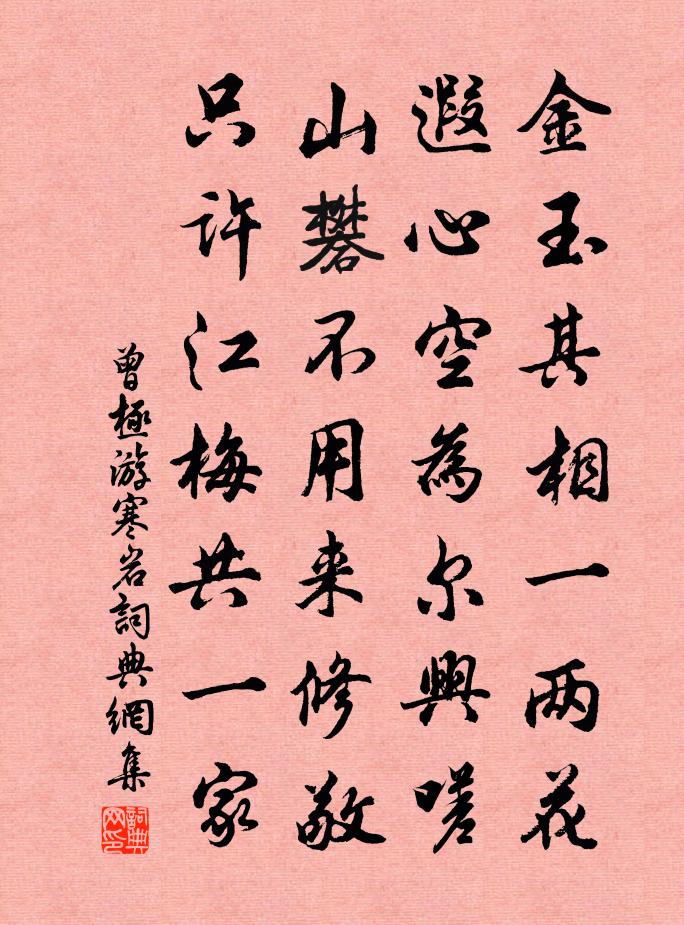 金玉其相一两花
遐心空為尔興嗟
山礬不用来修敬
只許江梅共一家
曾極游寒岩詞典網集
詞典网印